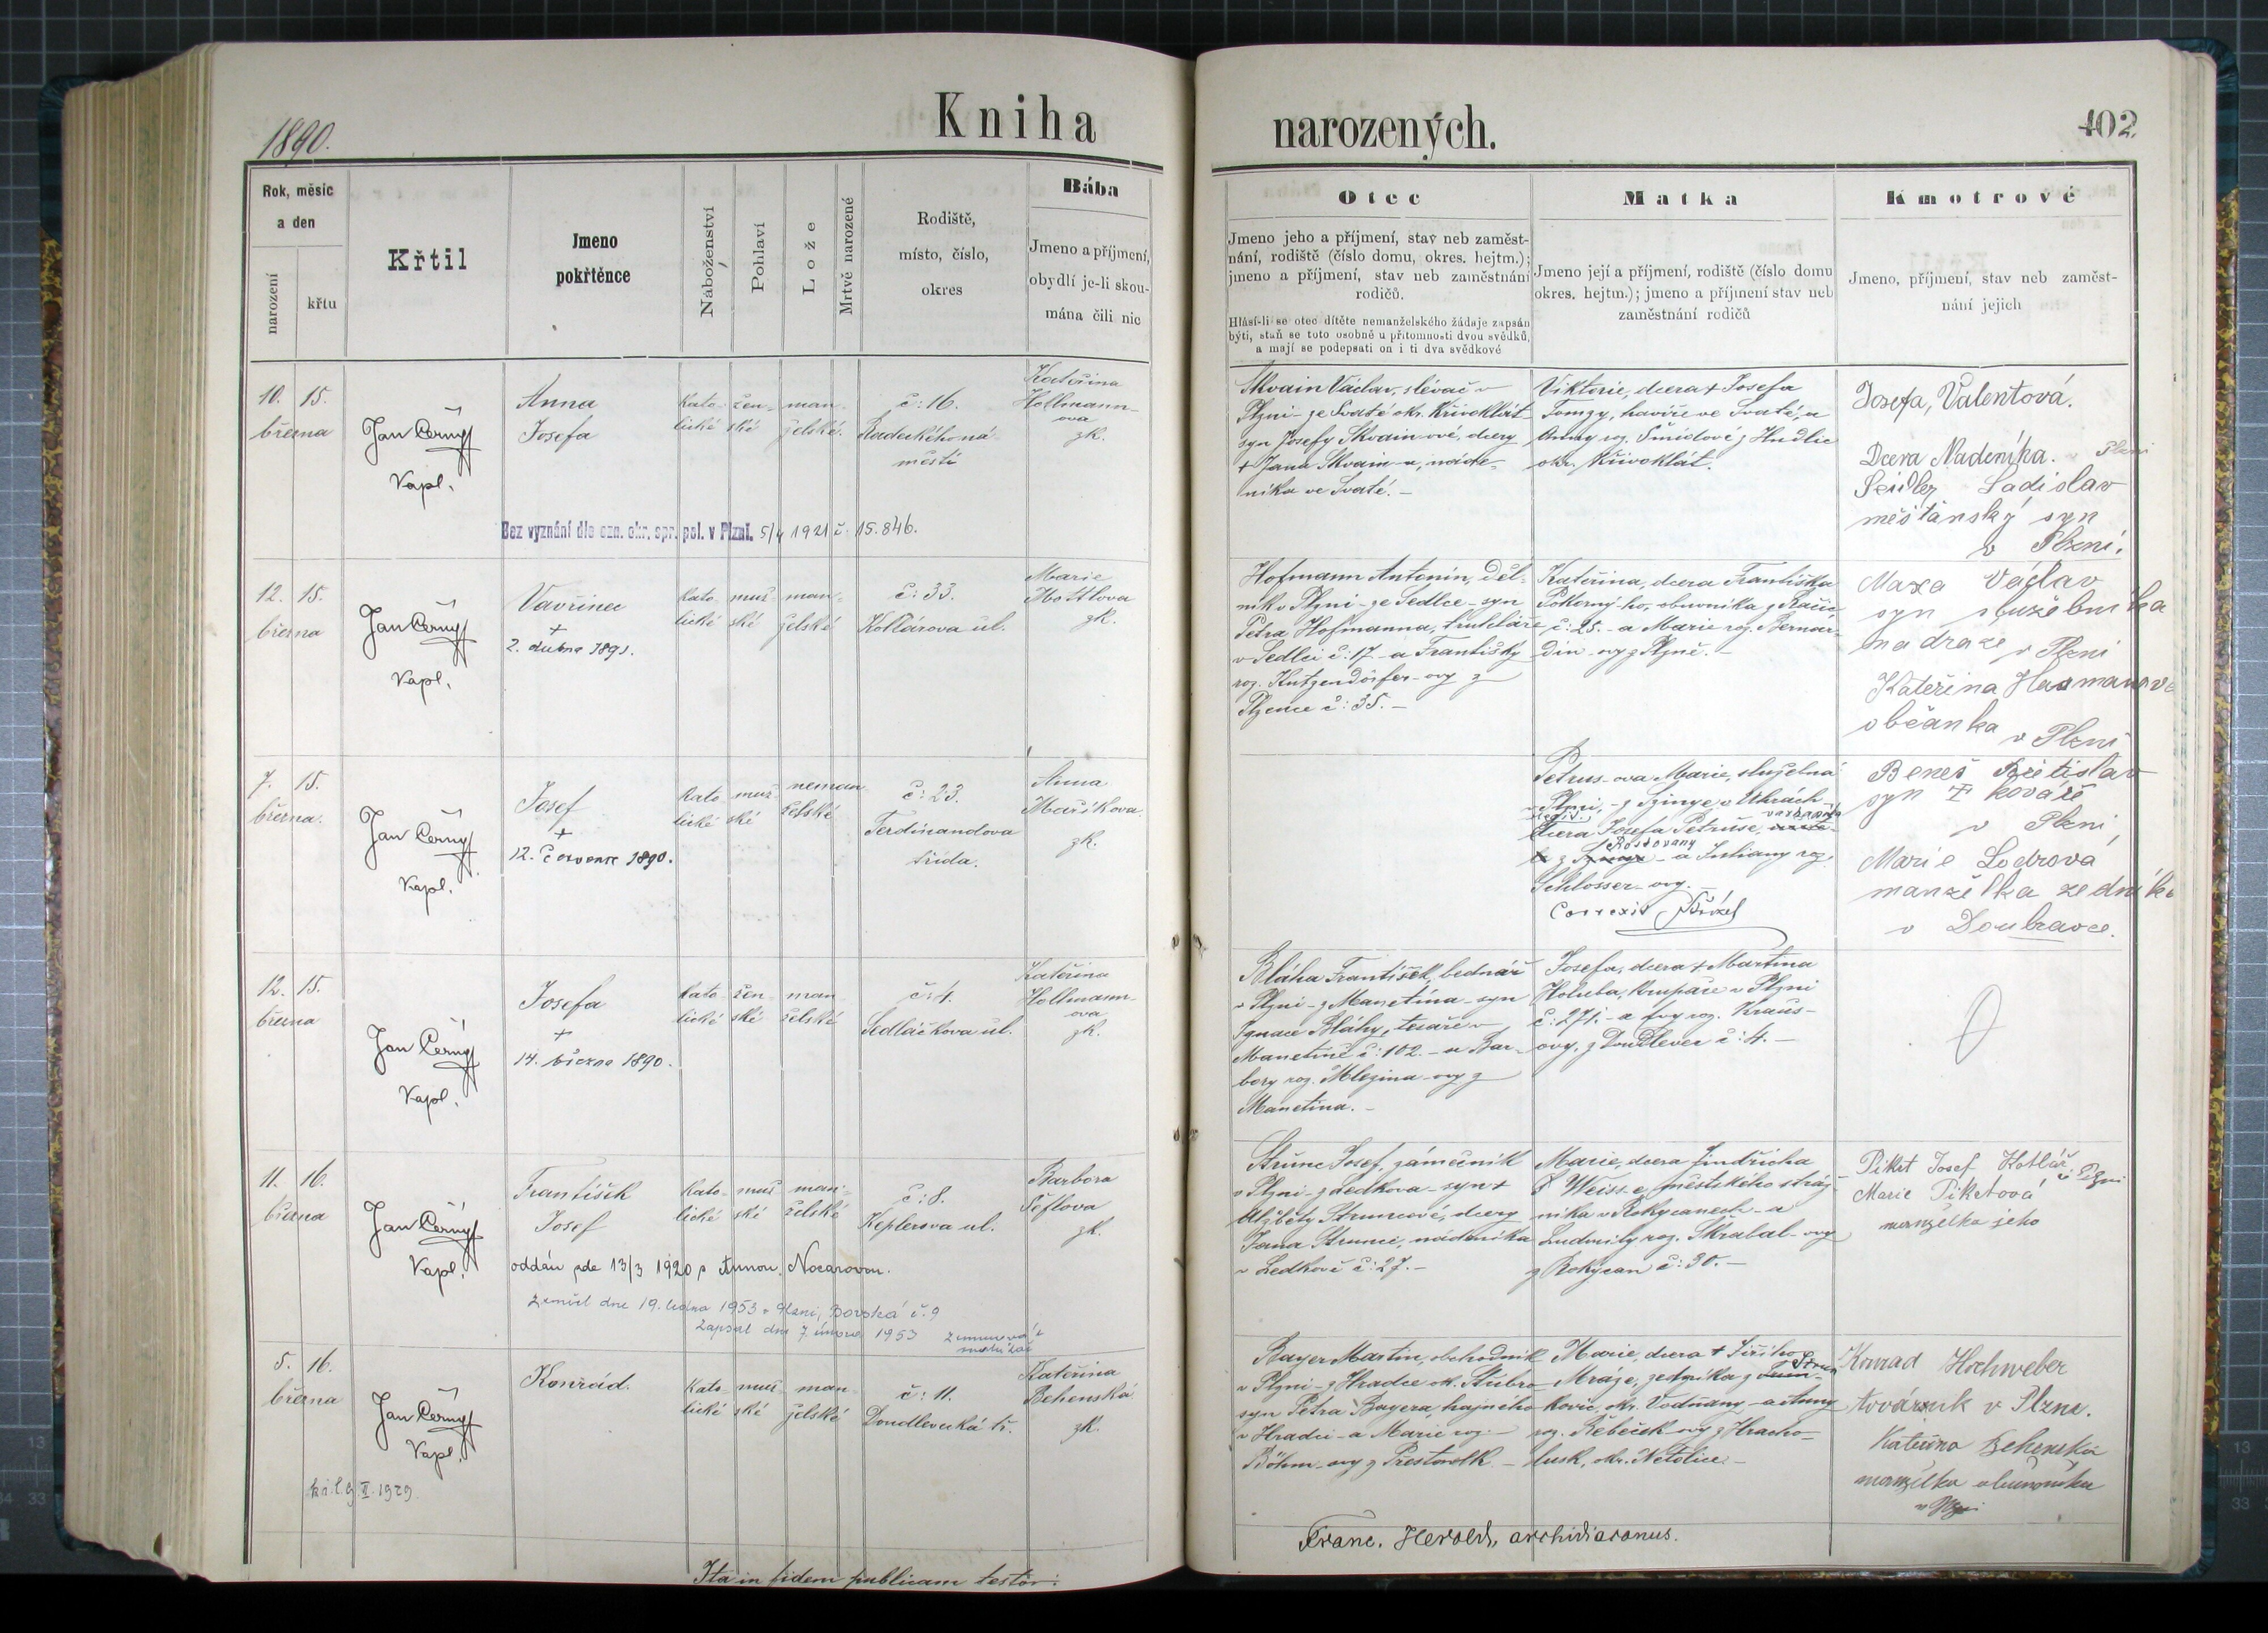 1890.
Kniha
narozených.
102
Rok, měsíc
a den
narození
křtu
Křtil
Jmeno
pokřtěnce
Náboženství
Pohlaví
Lože
Mrtvě narozené
Rodiště,
místo, číslo,
okres
Bába
Jmeno a příjmení,
obydlí je-li skou-
mána čili nic
Otec
Jmeno jeho a příjmení, stav neb zaměst-
nání, rodiště (číslo domu, okres. hejtm.);
jmeno a příjmení, stav neb zaměstnání
rodičů.
Hlásí-li se otec dítěte nemanželského žádaje zapsán
býti, staň se toto osobně u přítomnosti dvou svědků,
a mají se podepsati on i ti dva svědkové
Matka
Jmeno její a příjmení, rodiště (číslo domu
okres. hejtm.); jmeno a příjmení stav neb
zaměstnání rodičů
Kmotrové
Jmeno, příjmení, stav neb zaměst-
nání jejich
10. 15.
března
Jan Černý
Kapl.
Anna
Josefa
kato- žen- man-
lické ské želské.
č: 16.
Radeckého ná-
městí
Kateřina
Hollmann-
ova
zk.
Skvain Václav, slévač v
Plzni - ze Svaté okr. Křivoklát
syn Josefy Skvain-ové, dcery
+ Jana Skvain-a, náde-
níka ve Svaté. -
Viktorie, dcera + Josefa
Tomzy, havíře ve Svaté, a
Anny roz. Šmídové z Hudlic
okr. Křivoklát.
Josefa, Valentová.
Dcera Nadeníka. v Plzni
Seidler Ladislav
měšťanský syn
v Plzni.
Bez vyznání dle ozn. okr. spr. pol. v Plzni. 5/4 1921 č. 15.846.
12. 15.
března
Jan Černý
Kapl.
Vavřinec
+
2. dubna 1891.
kato- muž- man-
lické ské želské
č: 33.
Kollárova ul.
Marie
Mottlova
zk.
Hofmann Antonín, děl-
ník v Plzni - ze Sedlce - syn
Petra Hofmanna, truhláře
v Sedlci č: 17 - a Františky
roz. Kutzendörfer-ovy z
Plzence č: 35. -
Kateřina, dcera Františka
Pokorný-ho, obuvníka z
č: 25. - a Marie roz. Bernar-
din-ovy z Plzně. -
Maxa Václav
syn služebníka
na draze v Plzni
Kateřina
občanka v Plzni
7. 15.
března.
Jan Černý
Kapl.
Josef
+
12. července 1890.
kato- muž- neman-
lické ské želské
č: 23.
Ferdinandova
třída.
Anna
Maříkova
zk.
Petrus-ova Marie, služebná
v Plzni, - z Szinye v Uhrách -
dcera Josefa Petruše,
z Rostovany - a Juliany roz.
Schlosser-ovy. -
Correxit
Beneš Břetislav
syn + kováře
v Plzni,
Marie Lodrová
manželka zedníka
v Doubravce.
12. 15.
března
Jan Černý
Kapl.
Josefa
+
14. března 1890.
kato- žen- man-
lické ské želské
č: 4.
Sedláčkova ul.
Kateřina
Hollmann-
ova
zk.
Bláha František, bednář
v Plzni - z Manetína - syn
Ignace Bláhy, tesaře v
Manetíně č: 102. - a Bar-
bory roz. Mlezina-ovy z
Manetína. -
Josefa, dcera + Martina
Holuba, krupaře v Plzni
č: 271. - a roz. Kraus-
ovy, z Doudlevec č: 4. -
11. 16.
března
Jan Černý
Kapl.
František
Josef
kato- muž- man-
lické ské želské
č: 8.
Keplerova ul.
Barbora
Šeflova
zk.
Strunc Josef, zámečník
v Plzni - z Ledkova - syn +
Alžběty Struncové, dcery
Jana Strunce, nádeníka
v Ledkově č: 27. -
Marie, dcera Jindřicha
Weiss-e, městského stráž-
níka v Rokycanech - a
Ludmily roz. Skrabal-ovy
z Rokycan č: 30. -
Pikrt Josef Kotlář v Plzni
Marie Piketová
manželka jeho
oddán zde 13/3 1920 s Annou Nocarovou.
Zemřel dne 19. ledna 1953 v Plzni, Borská č. 9
Zapsal dne 7. února 1953
5. 16.
března
Jan Černý
Kapl.
Konrád.
kato- muž- man-
lické ské želské
č: 11.
Doudlevecká tř.
Kateřina
Behenská
zk.
Bayer Martin, obchodník
v Plzni - z Hradce ok. Stříbro
syn Petra Bayera, hajného
v Hradci - a Marie roz. -
Böhm-ovy z Přestavlk -
Marie, dcera + Jiřího
Mráze, zedníka z Strun-
kovic, okr. Vodňany - a Anny
roz. Řebeček-ovy z Hracho-
lusk, okr. Netolice. -
Konrad Hochweber
továrník v Plzni.
Kateřina Behenská
manželka obuvníka
v Plzni
kř. l. 9 II. 1929
Ita in fidem publicam testor:
Franc. Herold, archidiaconus.